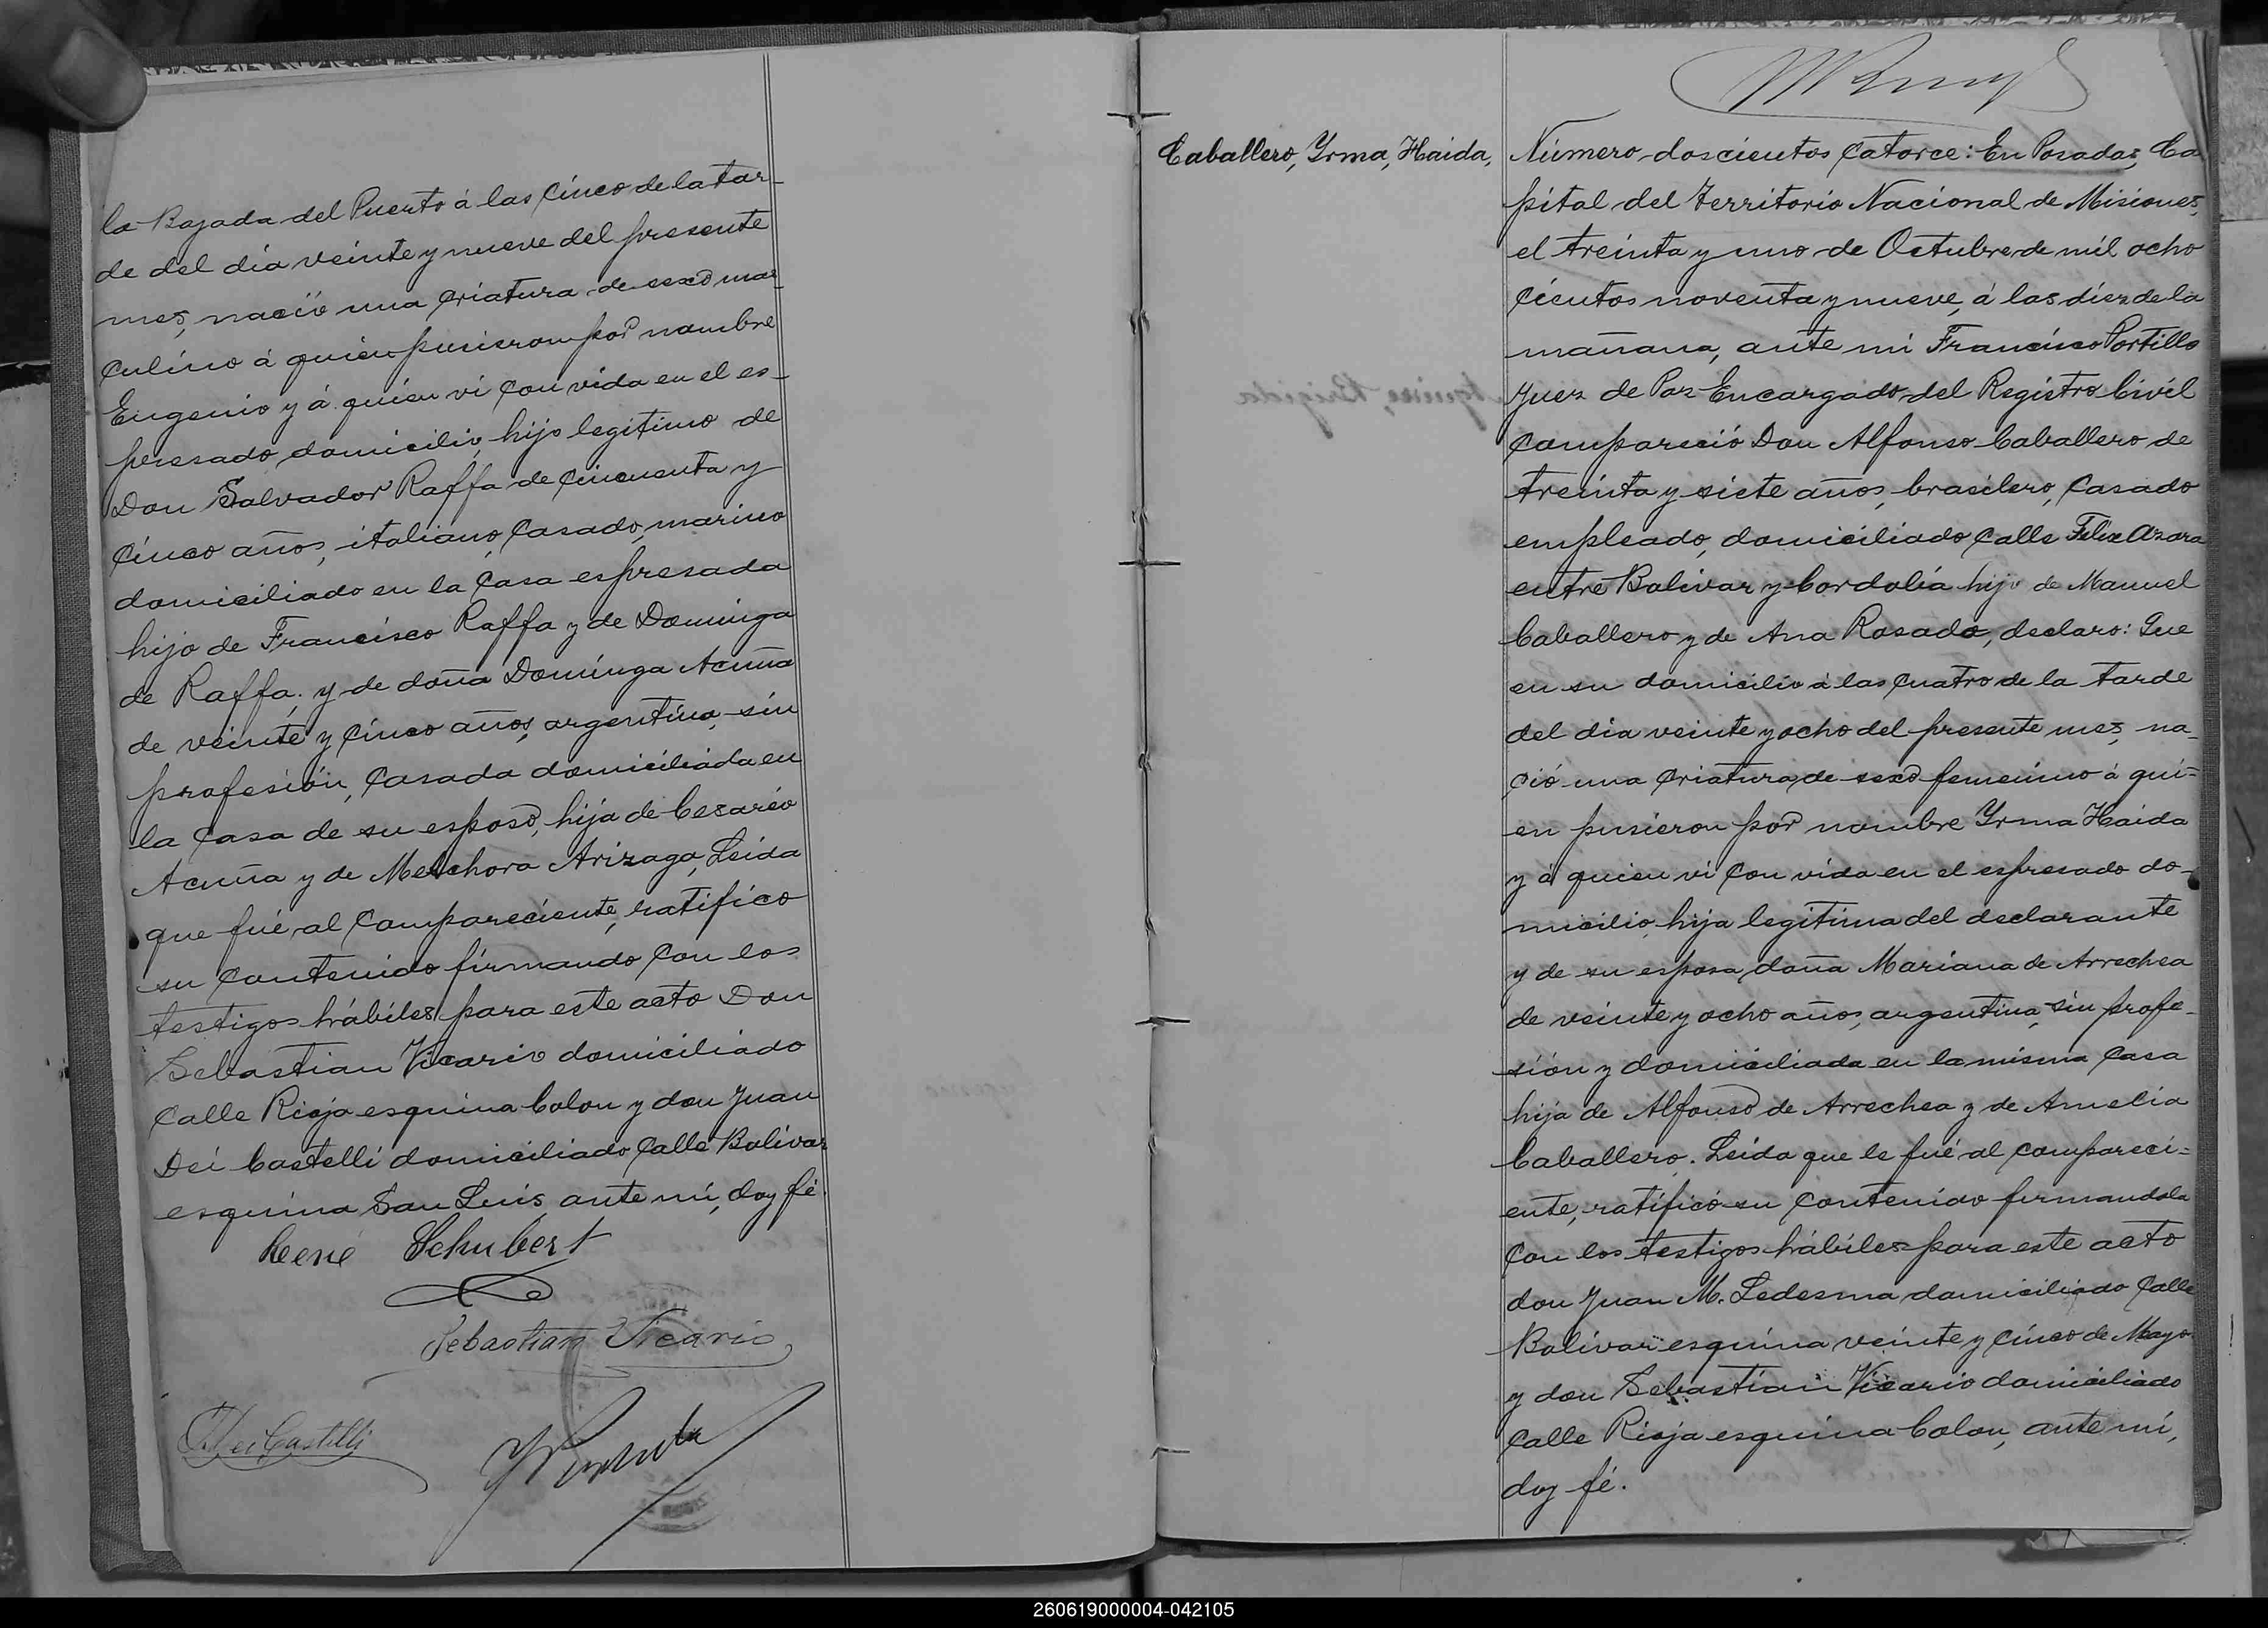 la Bajada del Puerto á las cinco de la tar-
de del dia veinte y nueve del presente
mes, nació una criatura de sexo mas-
culino á quien pusieron por nombre
Eugenio y á quien vi con vida en el es-
presado domicilio, hijo legitimo de
Don Salvador Raffa de cincuenta y
cinco años, italiano, casado, marino
domiciliado en la casa espresada
hijo de Francisco Raffa y de Dominga
de Raffa; y de doña Dominga Acuña
de veinte y cinco años, argentina, sin
profesión, casada domiciliada en
la casa de su esposo, hija de Cesareo
Acuña y de Melchora Arizaga, Leida
que fué al compareciente, ratifico
su contenido firmando con los
testigos hábiles para este acto Don
Sebastian Vicario domiciliado
Calle Rioja esquina Colon y don Juan
Dei Castelli domiciliado Calle Bolivar
esquina San Luis ante mi, doy fé.
René Schubert
Sebastian Vicario
Dei Castelli
Caballero, Yrma, Haida,
Número doscientos catorce: En Posadas, Ca
pital del Territorio Nacional de Misiones,
el treinta y uno de Octubre de mil ocho
cientos noventa y nueve, á las diez de la
mañana, ante mi Francisco Portillo
Juez de Paz Encargado del Registro Civil
compareció Don Alfonso Caballero de
treinta y siete años, brasilero, casado
empleado, domiciliado calle Felix Azara
entre Bolivar y Cordobá hijo de Manuel
Caballero y de Ana Rosado, declaro: Que
en su domicilio á las cuatro de la tarde
del dia veinte y ocho del presente mes, na-
ció una criatura de sexo femenino á qui=
en pusieron por nombre Yrma Haida
y á quien vi con vida en el espresado do-
micilio, hija legitima del declarante
y de su esposa, doña Mariana de Arrechea
de veinte y ocho años, argentina, sin profe-
sión y domiciliada en la misma casa
hija de Alfonso de Arrechea y de Amelia
Caballero. Leida que le fué al compareci=
ente, ratificó su contenido firmandola
con los testigos hábiles para este acto
don Juan M. Ledesma domiciliado Calle
Bolivar esquina veinte y cinco de Mayo
y don Sebastian Vicario domiciliado
Calle Rioja esquina Colon, ante mi,
doy fé.
260619000004-042105